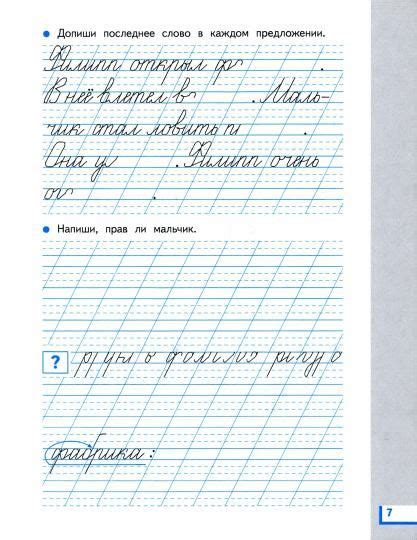 Допиши последнее слово в каждом предложении.
Филипп открыл ф .
В неё влетел в . Маль-
чик стал ловить п .
Она у . Филипп очень
ог .
Напиши, прав ли мальчик.
?
фабрика :
7